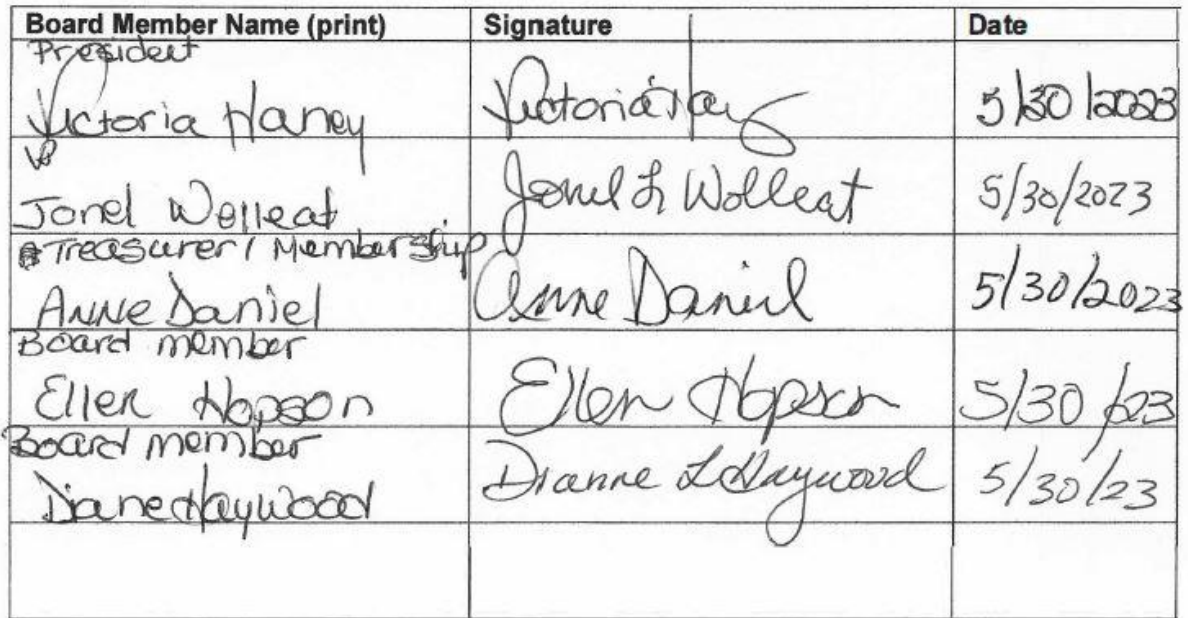 Board Member Name (print) Signature Date
President
Victoria Haney Victoria Haney 5/30/2023
VP
Jonel Wolleat Jonel L Wolleat 5/30/2023
Treasurer / Membership
Anne Daniel Anne Daniel 5/30/2023
Board member
Ellen Hopson Ellen Hopson 5/30/23
Board member
Diane Haywood Dianne L Haywood 5/30/23